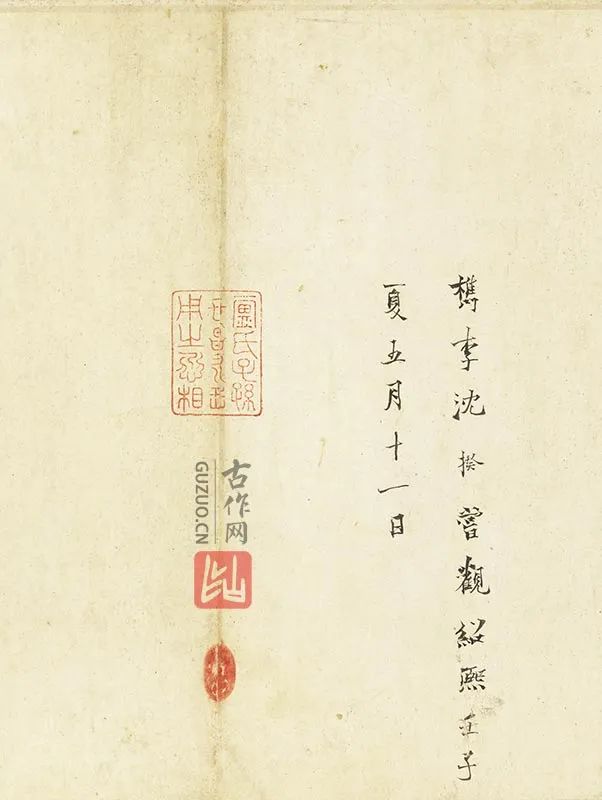 檇李沈揆嘗觀紹熙壬子
夏五月十一日
古作网
GUZUO.CN